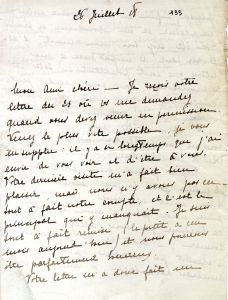 26 Juillet 18 133
Mon Ami chéri — Je reçois votre
lettre du 23 où vs me demandez
quand vous devez venir en permission
Venez le plus vite possible. je vous
en supplie : il y a si longtemps que j'ai
envie de vous voir et d'être à vous.
Votre dernière visite m'a fait bien
plaisir mais nous n'y avons pas eu
tout à fait notre compte, et c'est le
principal qui y manquait. Je suis
tout à fait remise
nous aujourd'hui) et nous pouvons
être parfaitement heureux
Votre lettre m'a donc fait un